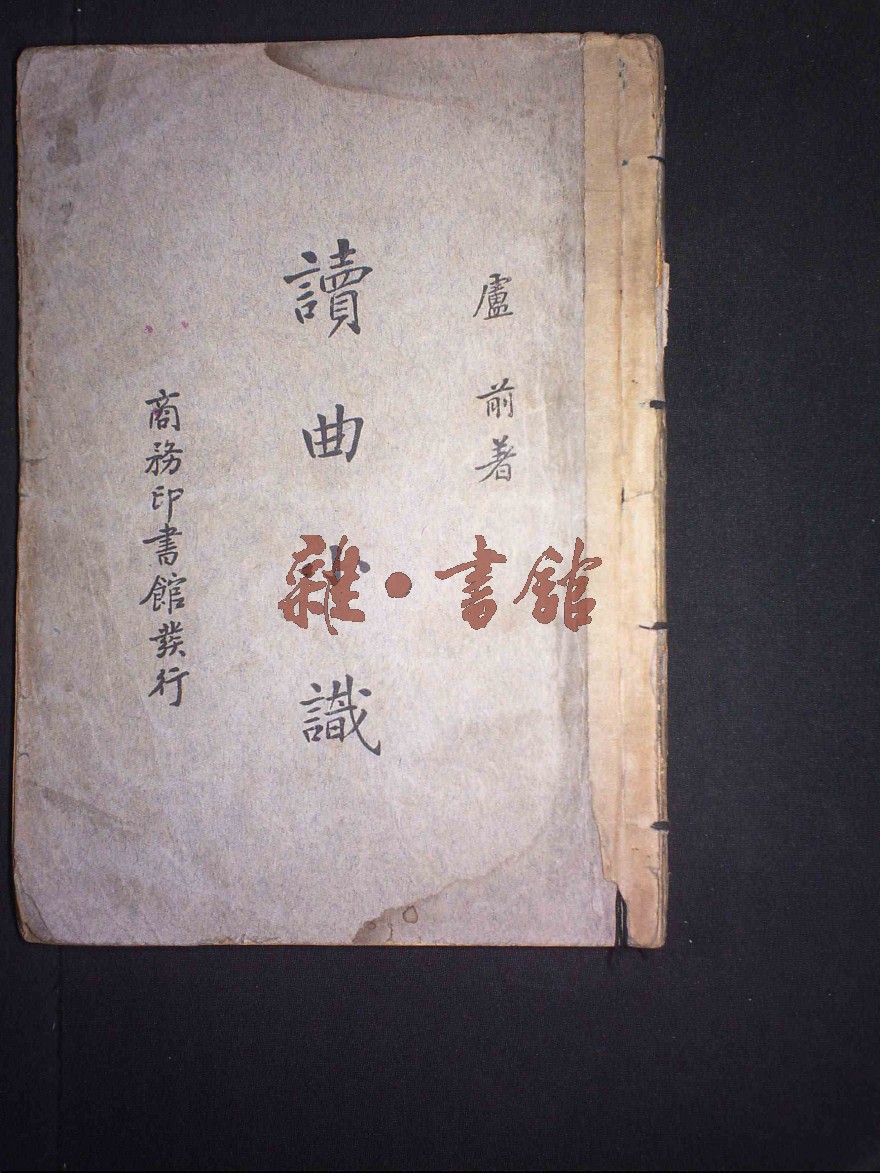 盧前著
讀曲小識
商務印書館發行
雜•書館